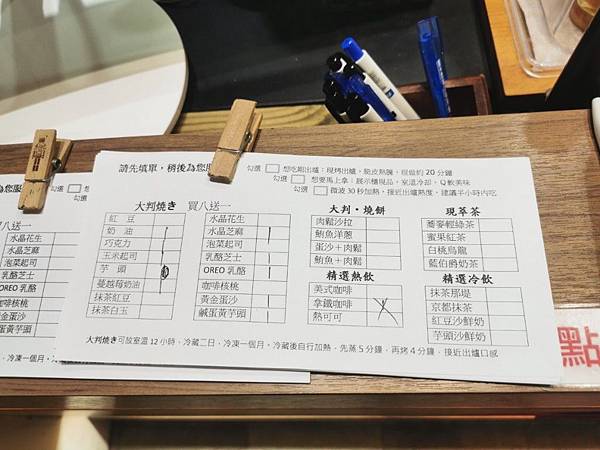 請先填單，稍後為您服
勾選 想吃期出爐：現烤出爐，脆皮熱騰，現做約 20 分鐘
勾選 想要馬上拿：展示櫃現品，室溫冷卻，Q 軟美味
勾選 微波 30 秒加熱，接近出爐熱度，建議半小時內吃
大判燒き 買八送一
紅 豆
奶 油
巧克力
玉米起司
芋 頭
蔓越莓奶油
抹茶紅豆
抹茶白玉
水晶花生
水晶芝麻
泡菜起司
乳酪芝士
OREO 乳酪
咖啡核桃
黃金蛋沙
鹹蛋黃芋頭
大判・燒餅
肉鬆沙拉
鮪魚洋蔥
蛋沙＋肉鬆
鮪魚＋肉鬆
精選熱飲
美式咖啡
拿鐵咖啡
熱可可
現萃茶
蕎麥輕綠茶
蜜果紅茶
白桃烏龍
藍伯爵奶茶
精選冷飲
抹茶那堤
京都抹茶
紅豆沙鮮奶
芋頭沙鮮奶
大判燒き可放室溫 12 小時，冷藏二日，冷凍一個月。冷藏後自行加熱，先蒸 5 分鐘，再烤 4 分鐘，接近出爐口感
為您服
勾選
勾選
買八送一
水晶花生
水晶芝麻
泡菜起司
乳酪芝士
OREO 乳酪
咖啡核桃
黃金蛋沙
鹹蛋黃芋頭
冷凍一個月。冷
點